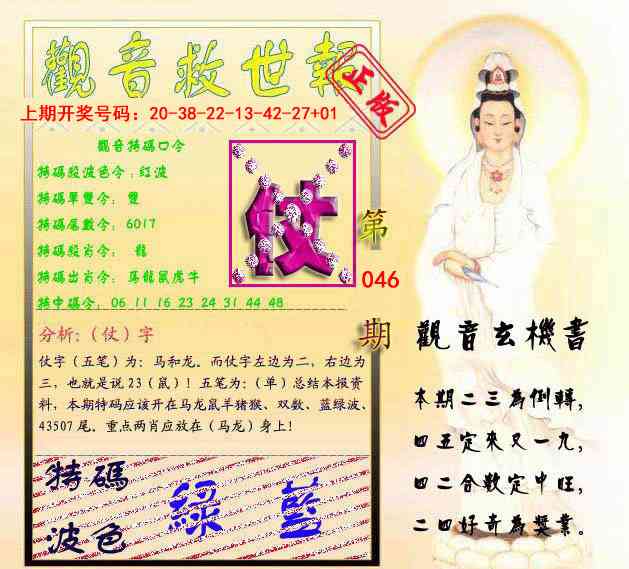 觀音救世報
正版
上期开奖号码：20-38-22-13-42-27+01
觀音特碼口令
特碼段波色令：紅波
特碼單雙令： 雙
特碼尾數令： 6017
特碼段肖令： 龍
特碼出肖令： 馬龍鼠虎牛
特中碼令： 06 11 16 23 24 31 44 48
仗
第
046
期
分析：（仗）字
仗字（五笔）为：马和龙。而仗字左边为二，右边为
三，也就是说 23（鼠）！五笔为：（单）总结本报资
料，本期特码应该开在马龙鼠羊猪猴、双数、蓝绿波、
43507 尾。重点两肖应放在（马龙）身上！
特碼
波色
綠 藍
觀音玄機書
本期二三為倒轉，
四五定來又一九，
四二合數定中旺，
二四好奇為獎業。